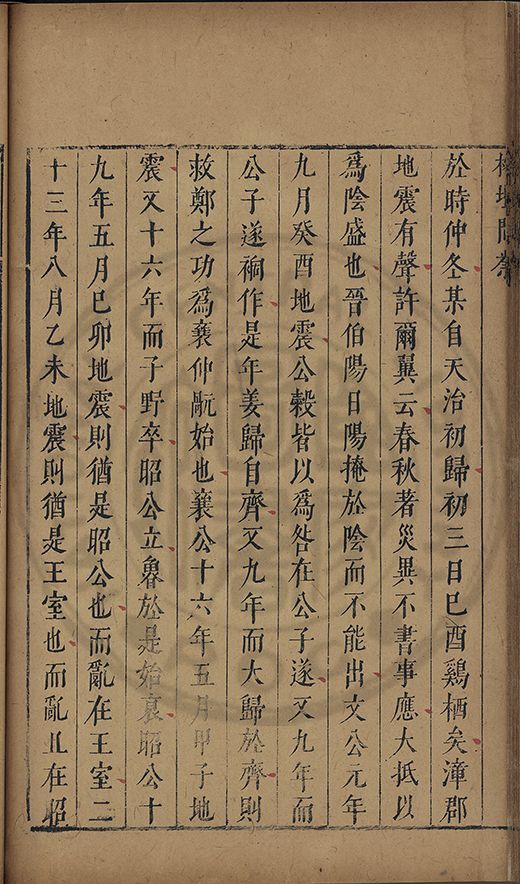 榕壇問業
於時仲冬某自天治初歸初三日巳酉鷄栖矣漳郡
地震有聲許爾翼云春秋著災異不書事應大抵以
爲陰盛也晉伯陽曰陽掩於陰而不能出文公元年
九月癸酉地震公穀皆以爲咎在公子遂又九年而
公子遂禍作是年姜歸自齊又九年而大歸於齊則
救鄭之功爲襄仲毈始也襄公十六年五月甲子地
震又十六年而子野卒昭公立魯於是始衰昭公十
九年五月巳卯地震則猶是昭公也而亂在王室二
十三年八月乙未地震則猶是王室也而亂且在昭